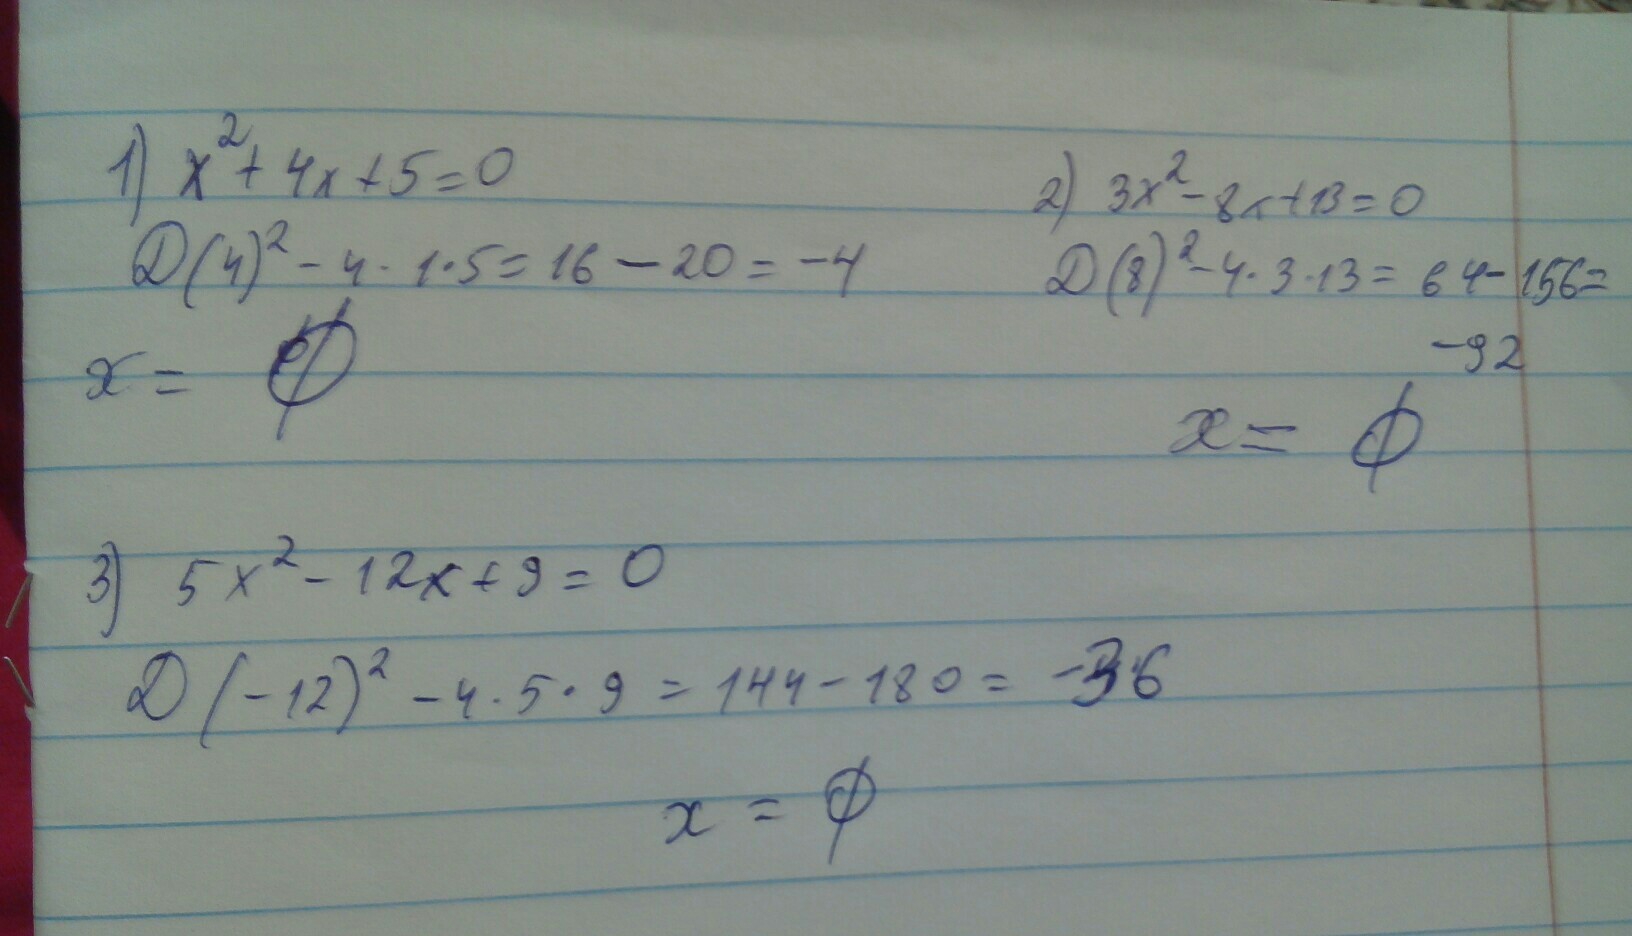 1) x²+4x+5=0
D(4)²-4·1·5=16-20=-4
x= ∅
2) 3x²-8x+13=0
D(8)²-4·3·13=64-156=
-92
x= ∅
3) 5x²-12x+9=0
D(-12)²-4·5·9=144-180=-36
x=∅